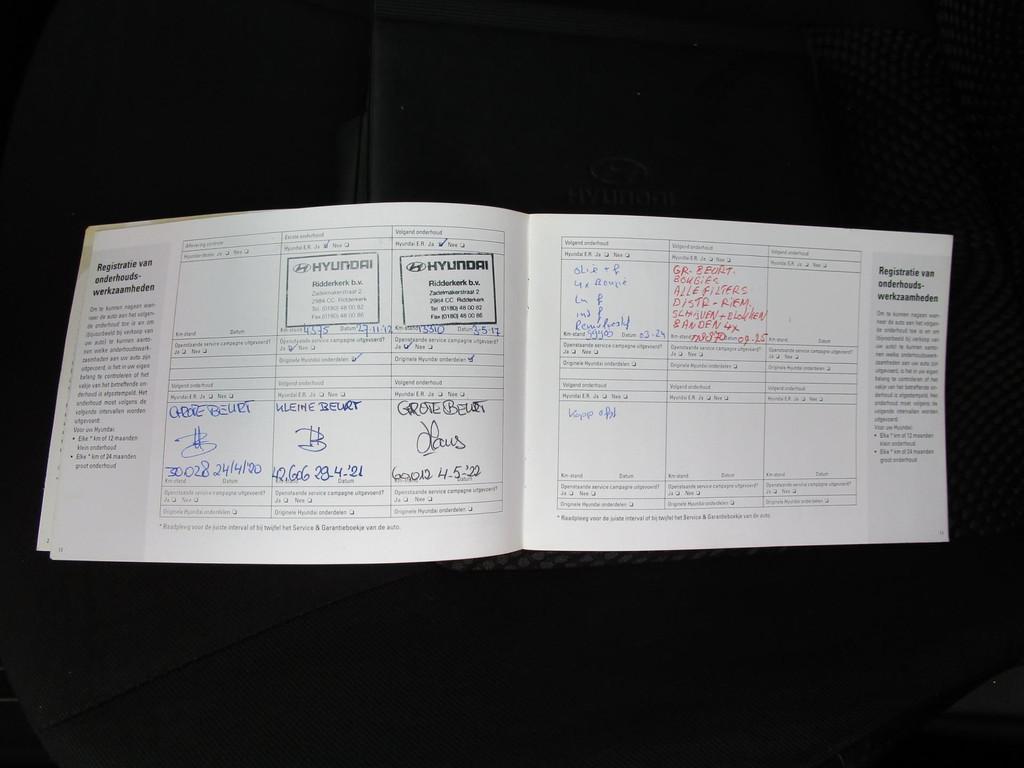 HYUNDAI
Registratie van
onderhouds-
werkzaamheden
Om te kunnen nagaan wan-
neer de auto aan het volgen-
de onderhoud toe is en om
(bijvoorbeeld bij verkoop van
uw auto) te kunnen aanto-
nen welke onderhoudswerk-
zaamheden aan uw auto zijn
uitgevoerd, is het in uw eigen
belang te controleren of het
vakje van het betreffende on-
derhoud is afgestempeld. Het
onderhoud moet volgens de
volgende intervallen worden
uitgevoerd:
Voor uw Hyundai:
• Elke * km of 12 maanden
klein onderhoud
• Elke * km of 24 maanden
groot onderhoud
Aflevering controle
Nee
Km-stand Datum
Openstaande service campagne uitgevoerd?
Ja Nee
Eerste onderhoud
Hyundai E.R. Ja Nee
HYUNDAI
Ridderkerk b.v.
Zadelmakerstraat 2
2984 CC Ridderkerk
Tel. (0180) 48 00 82
Fax (0180) 48 00 86
Km-stand 4375 Datum 27-11-12
Openstaande service campagne uitgevoerd?
Ja Nee
Originele Hyundai onderdelen
Volgend onderhoud
Hyundai E.R. Ja Nee
HYUNDAI
Ridderkerk b.v.
Zadelmakerstraat 2
2984 CC Ridderkerk
Tel. (0180) 48 00 82
Fax (0180) 48 00 86
Km-stand Datum
Openstaande service campagne uitgevoerd?
Ja Nee
Originele Hyundai onderdelen
Volgend onderhoud
Hyundai E.R. Ja Nee
GROTE BEURT
30.028 24/4/'20
Km-stand Datum
Openstaande service campagne uitgevoerd?
Ja Nee
Originele Hyundai onderdelen
Volgend onderhoud
Hyundai E.R. Ja Nee
KLEINE BEURT
42.666 29-4-'21
Km-stand Datum
Openstaande service campagne uitgevoerd?
Ja Nee
Originele Hyundai onderdelen
Volgend onderhoud
Hyundai E.R. Ja Nee
GROTE BEURT
60.012 4-5-'22
Km-stand Datum
Openstaande service campagne uitgevoerd?
Ja Nee
Originele Hyundai onderdelen
* Raadpleeg voor de juiste interval of bij twijfel het Service & Garantieboekje van de auto.
Volgend onderhoud
Hyundai E.R. Ja Nee
olie + f
4x Bougie
Km-stand Datum 03-24
Openstaande service campagne uitgevoerd?
Ja Nee
Originele Hyundai onderdelen
Volgend onderhoud
Hyundai E.R. Ja Nee
GR. BEURT.
BOUGIES
ALLE FILTERS
DISTR-RIEM.
SCHIJVEN + BLOKKEN
BANDEN 4x
Km-stand Datum 09-25
Openstaande service campagne uitgevoerd?
Ja Nee
Originele Hyundai onderdelen
Volgend onderhoud
Hyundai E.R. Ja Nee
Km-stand Datum
Openstaande service campagne uitgevoerd?
Ja Nee
Originele Hyundai onderdelen
Volgend onderhoud
Hyundai E.R. Ja Nee
Km-stand Datum
Openstaande service campagne uitgevoerd?
Ja Nee
Originele Hyundai onderdelen
Volgend onderhoud
Hyundai E.R. Ja Nee
Km-stand Datum
Openstaande service campagne uitgevoerd?
Ja Nee
Originele Hyundai onderdelen
Volgend onderhoud
Hyundai E.R. Ja Nee
Km-stand Datum
Openstaande service campagne uitgevoerd?
Ja Nee
Originele Hyundai onderdelen
* Raadpleeg voor de juiste interval of bij twijfel het Service & Garantieboekje van de auto.
Registratie van
onderhouds-
werkzaamheden
Om te kunnen nagaan wan-
neer de auto aan het volgen-
de onderhoud toe is en om
(bijvoorbeeld bij verkoop van
uw auto) te kunnen aanto-
nen welke onderhoudswerk-
zaamheden aan uw auto zijn
uitgevoerd, is het in uw eigen
belang te controleren of het
vakje van het betreffende on-
derhoud is afgestempeld. Het
onderhoud moet volgens de
volgende intervallen worden
uitgevoerd:
Voor uw Hyundai:
• Elke * km of 12 maanden
klein onderhoud
• Elke * km of 24 maanden
groot onderhoud